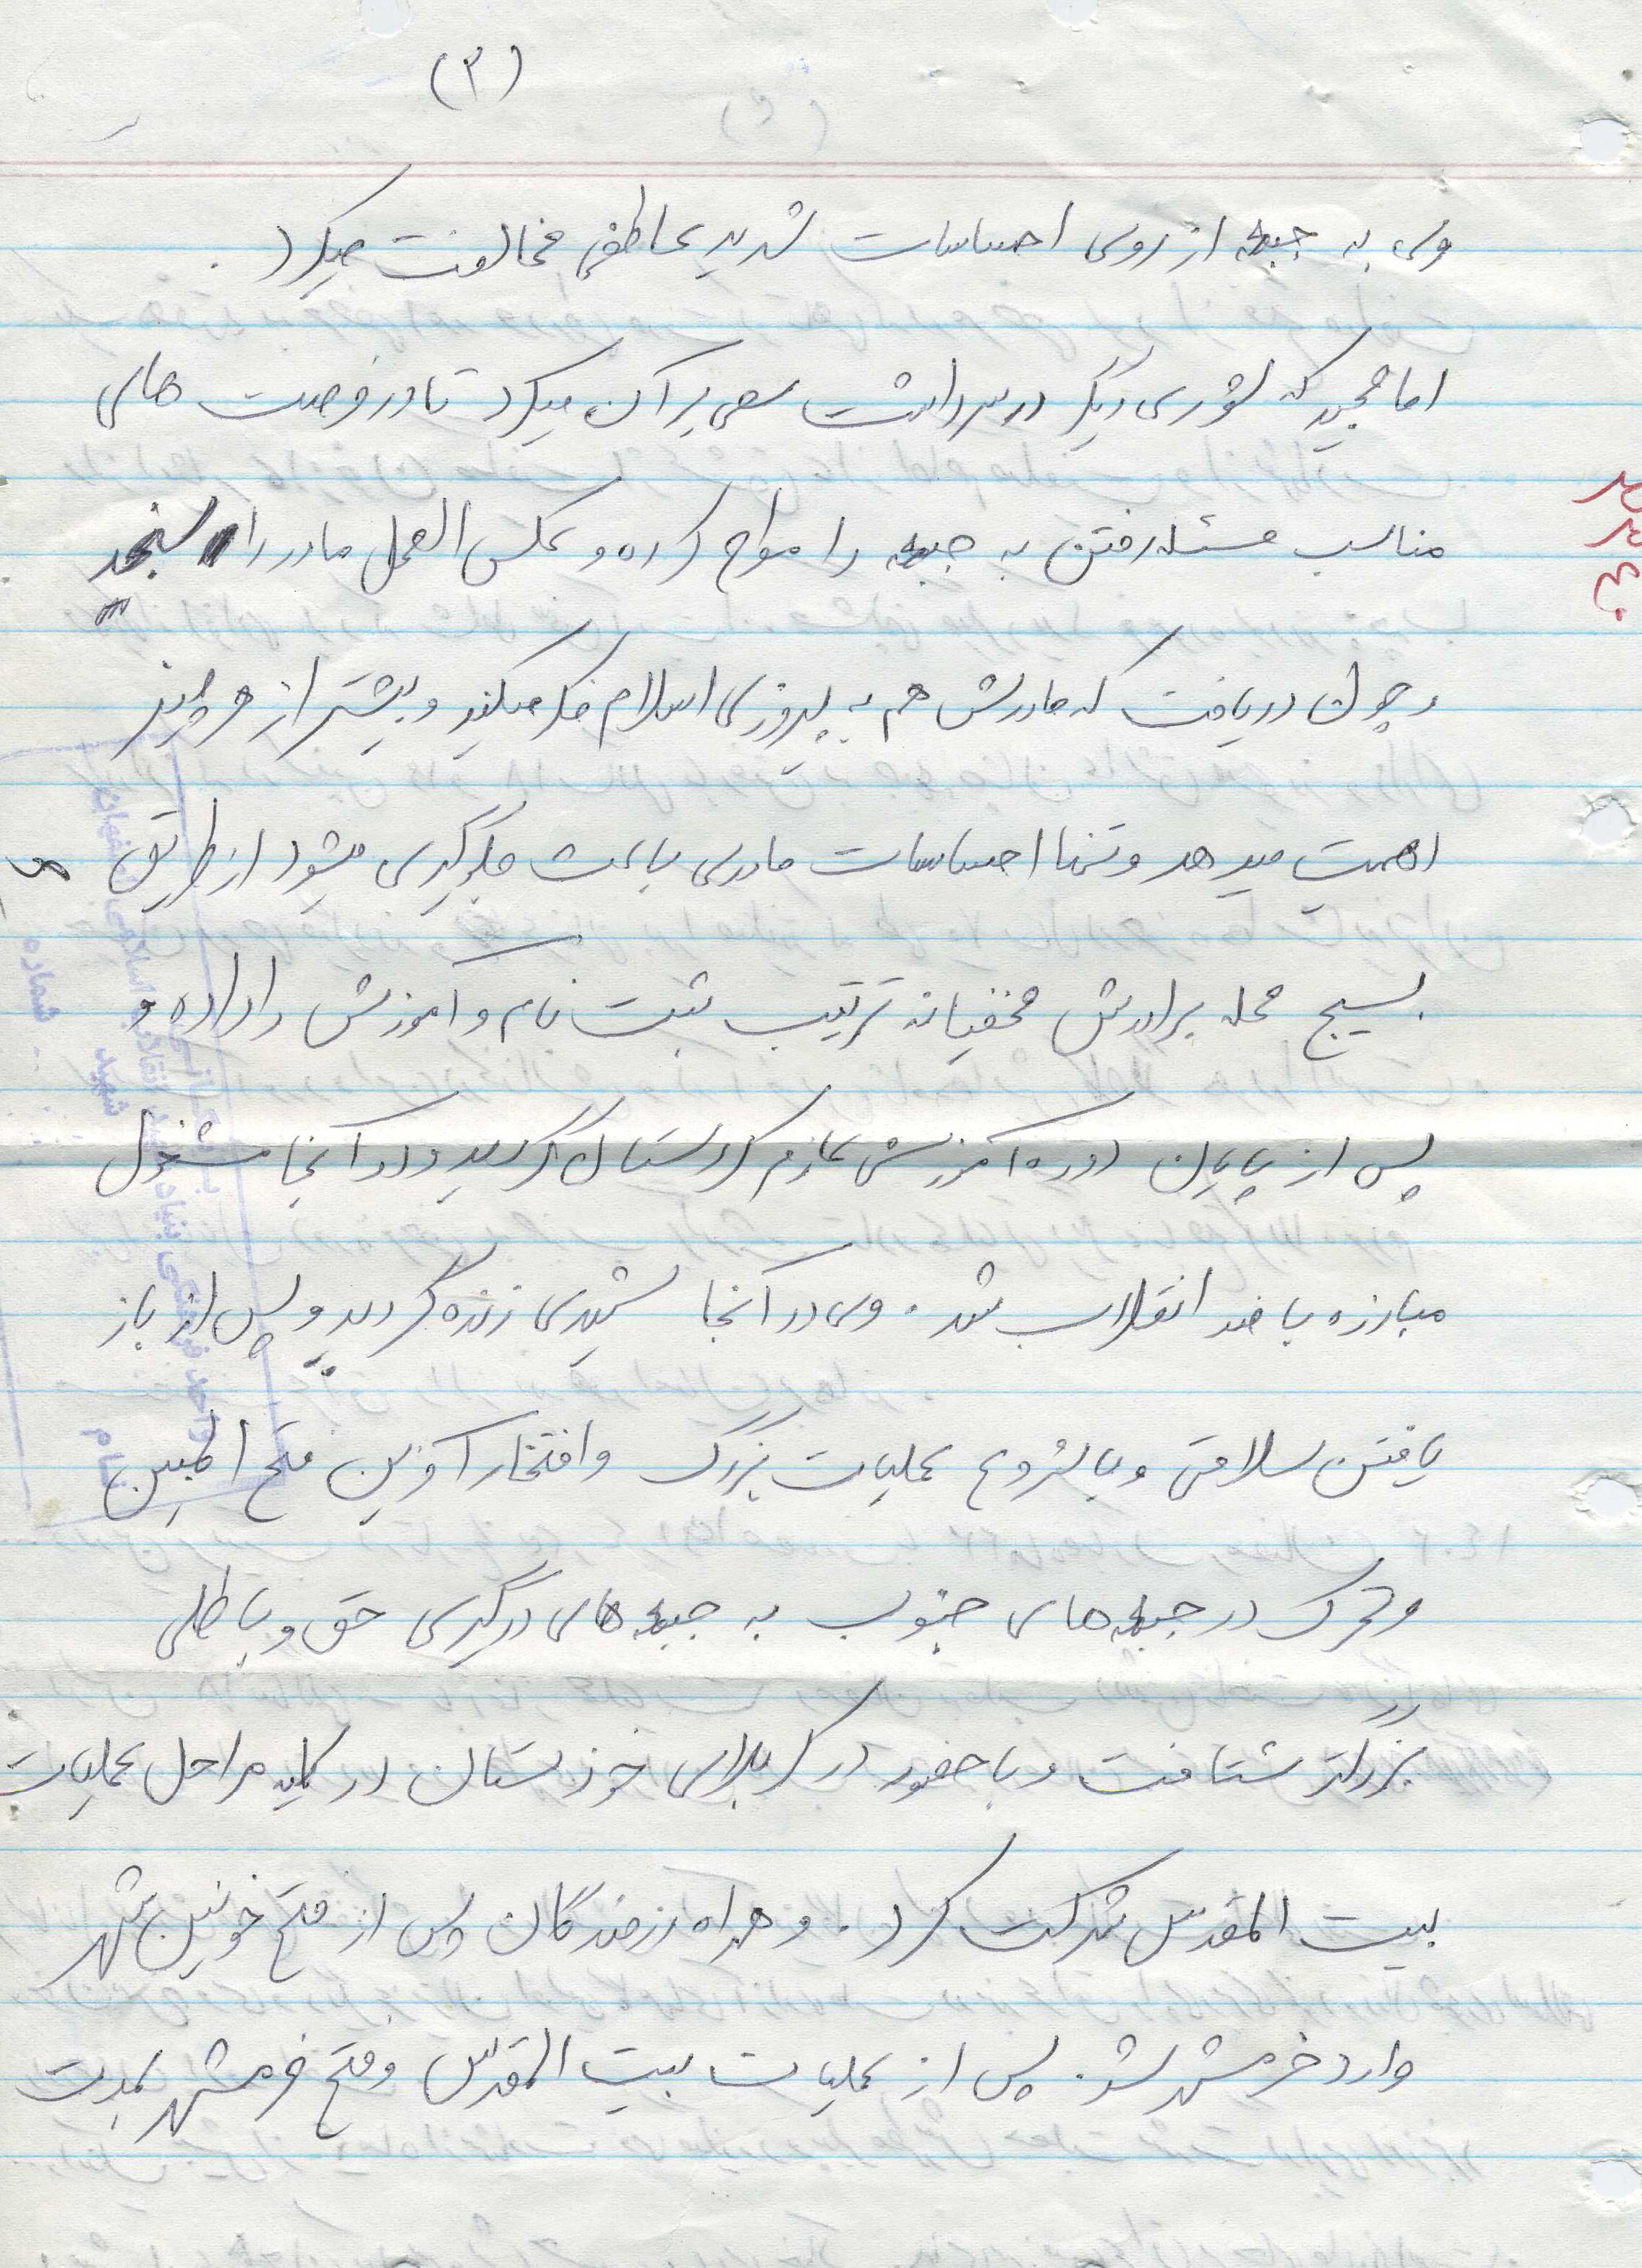 (۳)
وی به جبهه از روی احساسات شدید عاطفی مخالفت میکرد.
اما مجید که شوری دیگر در سر داشت سعی بر آن میکرد تا در فرصت های
مناسب مسئله رفتن به جبهه را مطرح کرده و عکس العمل مادر را بسنجد
و چون دریافت که مادرش هم به پیروزی اسلام فکر میکند و بیشتر از هر چیز
اهمیت میدهد و تنها احساسات مادری باعث جلوگیری میشود از طریق
بسیج محله برادرش مخفیانه ترتیب ثبت نام و آموزش را داده و
پس از پایان دوره آموزشی عازم کردستان گردید و در آنجا مشغول
مبارزه با ضد انقلاب شد. وی در آنجا شهیدی زنده گردید و پس از باز
یافتن سلامتی و با شروع عملیات بزرگ و افتخار آفرین فتح المبین
و تحرک در جبهه های جنوب به جبهه های درگیری حق و باطلی
بزرگتر شتافت و با حضور در کربلای خوزستان در کلیه مراحل عملیات
بیت المقدس شرکت کرد. و همراه رزمندگان پس از فتح خونین شهر
وارد خرمشهر شد. پس از عملیات بیت المقدس و فتح خرمشهر بمدت